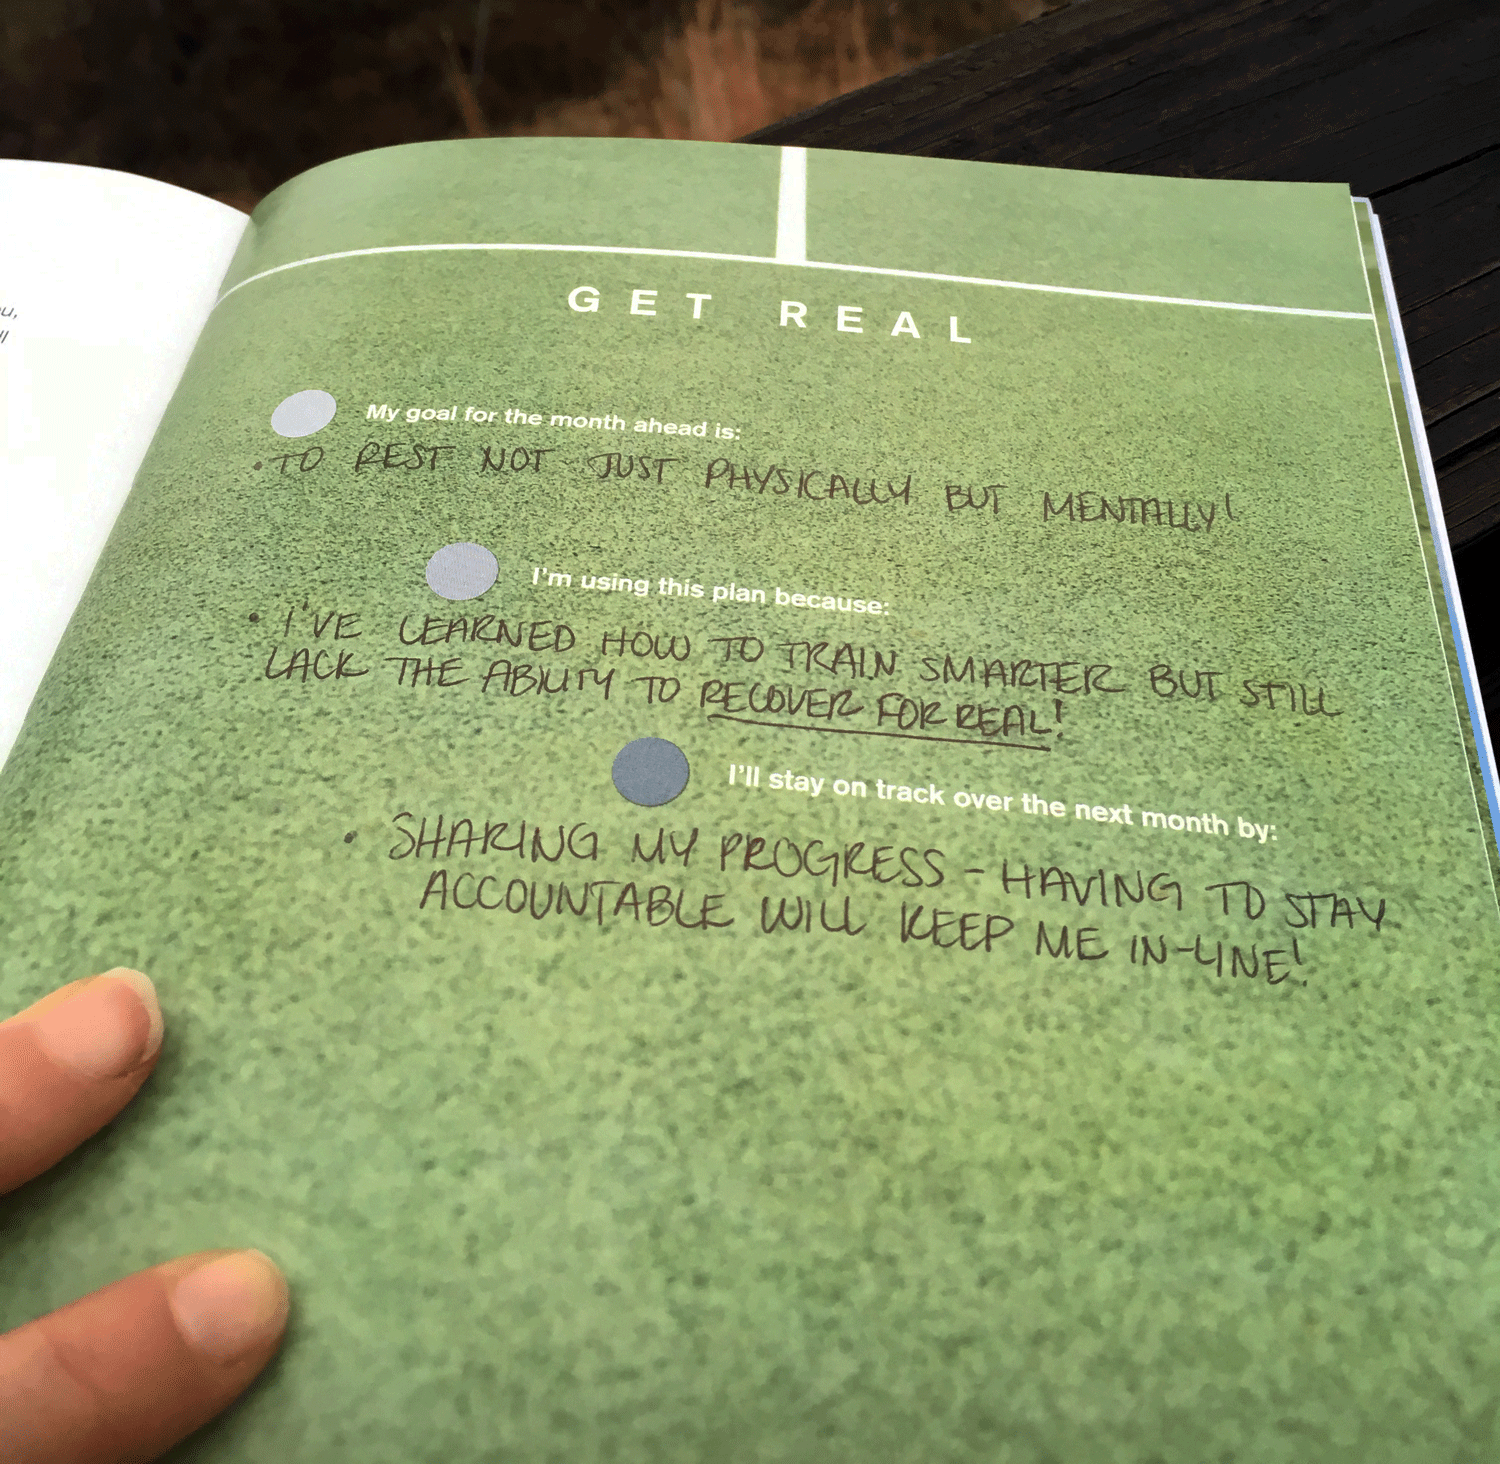 u,
ll
GET REAL
My goal for the month ahead is:
• TO REST NOT JUST PHYSICALLY BUT MENTALLY!
I'm using this plan because:
• I'VE LEARNED HOW TO TRAIN SMARTER BUT STILL
LACK THE ABILITY TO RECOVER FOR REAL!
I'll stay on track over the next month by:
• SHARING MY PROGRESS - HAVING TO STAY
ACCOUNTABLE WILL KEEP ME IN-LINE!